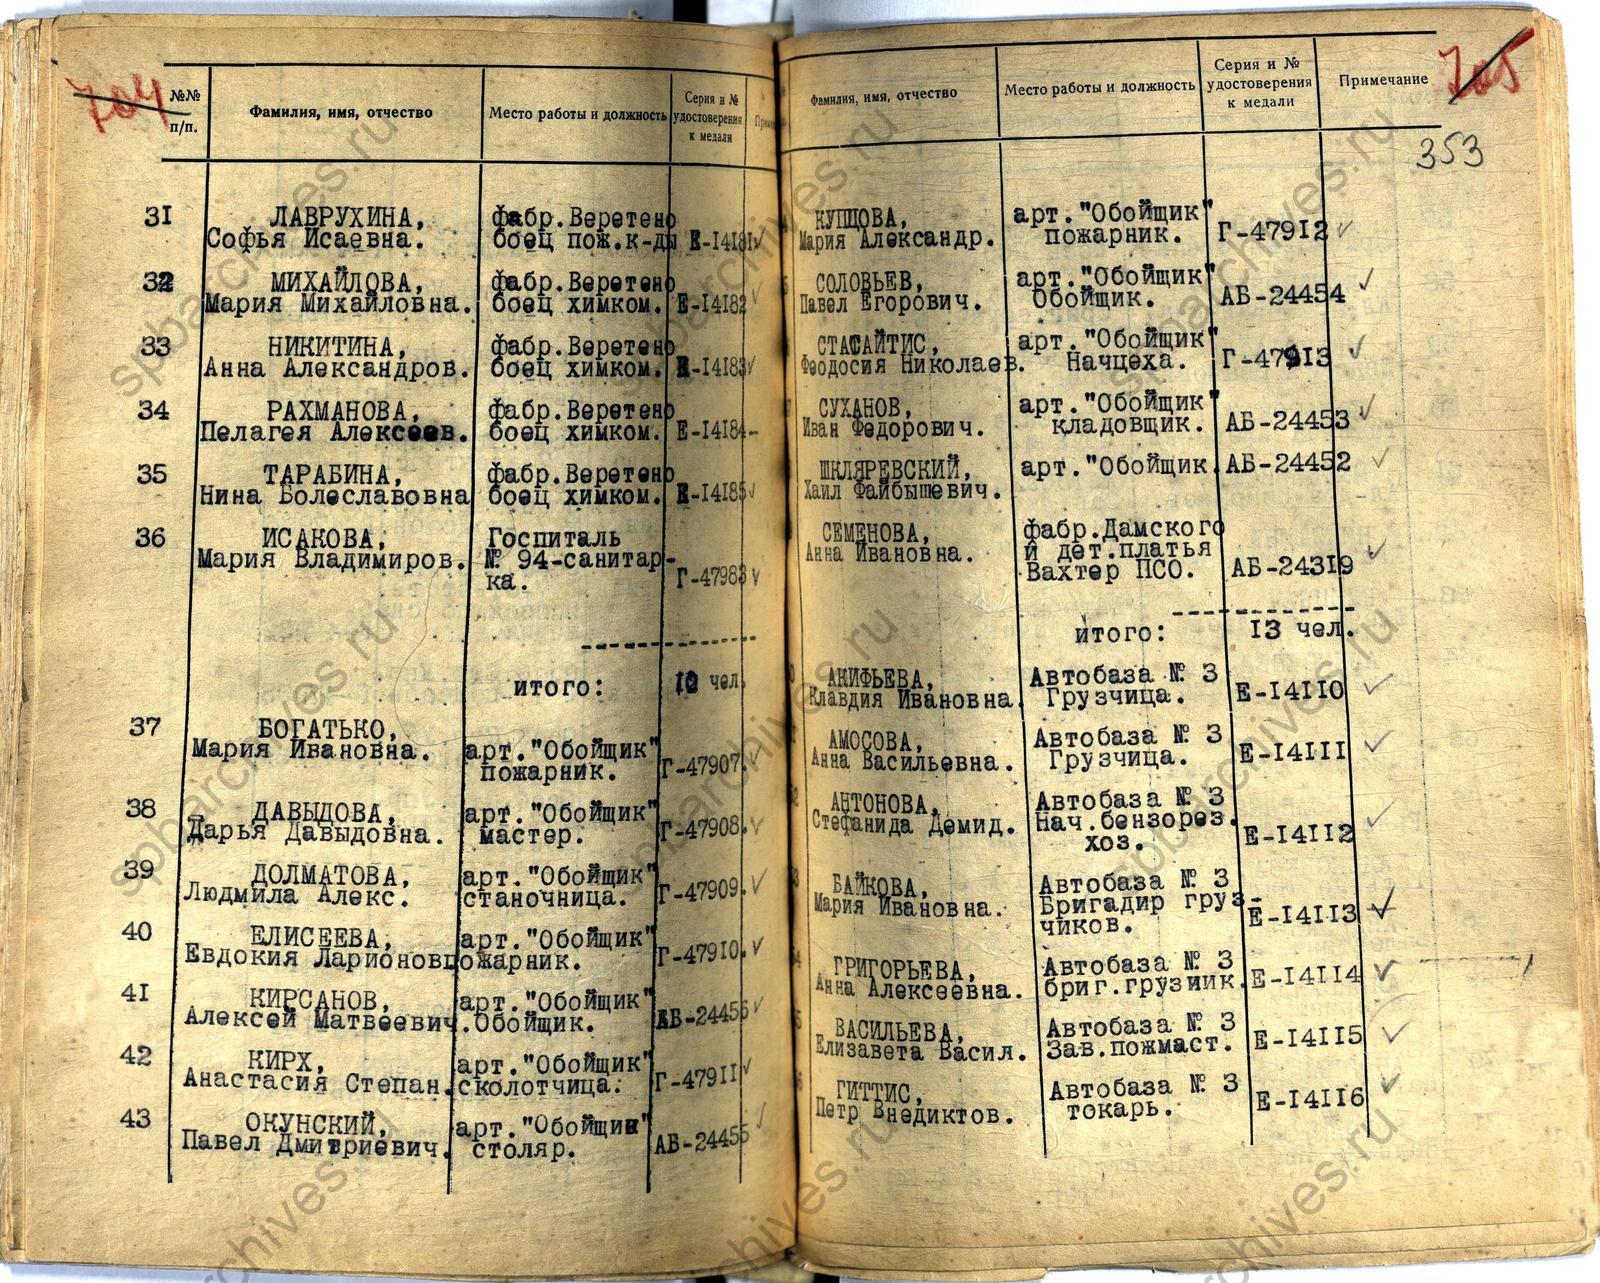 704
№№
п/п.
Фамилия, имя, отчество
Место работы и должность
Серия и №
удостоверения
к медали
31 ЛАВРУХИНА, фабр.Веретено
Софья Исаевна. боец пож.к-ды Е-14181
32 МИХАЙЛОВА, фабр.Веретено
Мария Михайловна. боец химком. Е-14182
33 НИКИТИНА, фабр.Веретено
Анна Александров. боец химком. Е-14183
34 РАХМАНОВА, фабр.Веретено
Пелагея Алексеев. боец химком. Е-14184
35 ТАРАБИНА, фабр.Веретено
Нина Болеславовна боец химком. Е-14185
36 ИСАКОВА, Госпиталь
Мария Владимиров. № 94-санитар-
ка. Г-47983
итого: 10 чел.
37 БОГАТЬКО,
Мария Ивановна. арт."Обойщик"
пожарник. Г-47907.
38 ДАВЫДОВА, арт."Обойщик"
Дарья Давыдовна. мастер. Г-47908.
39 ДОЛМАТОВА, арт."Обойщик"
Людмила Алекс. станочница. Г-47909.
40 ЕЛИСЕЕВА, арт."Обойщик"
Евдокия Ларионовпожарник. Г-47910.
41 КИРСАНОВ, арт."Обойщик"
Алексей Матвеевич.Обойщик. АБ-24456
42 КИРХ, арт."Обойщик"
Анастасия Степан.сколотчица. Г-47911
43 ОКУНСКИЙ, арт."Обойщик"
Павел Дмитриевич. столяр. АБ-24455
705
353
Фамилия, имя, отчество
Место работы и должность
Серия и №
удостоверения
к медали
Примечание
КУПЦОВА, арт."Обойщик"
Мария Александр. пожарник. Г-47912
СОЛОВЬЕВ, арт."Обойщик"
Павел Егорович. Обойщик. АБ-24454
СТАСАЙТИС, арт."Обойщик"
Феодосия Николаев. Начцеха. Г-47913
СУХАНОВ, арт."Обойщик"
Иван Федорович. кладовщик. АБ-24453
ШКЛЯРЕВСКИЙ, арт."Обойщик. АБ-24452
Хаил Файбышевич.
СЕМЕНОВА, фабр.Дамского
Анна Ивановна. и дет.платья
Вахтер ПСО. АБ-24319
итого: 13 чел.
АКИФЬЕВА, Автобаза № 3
Клавдия Ивановна. Грузчица. Е-14110
АМОСОВА, Автобаза № 3
Анна Васильевна. Грузчица. Е-14111
АНТОНОВА, Автобаза № 3
Стефанида Демид. Нач.бензорез.
хоз. Е-14112
БАЙКОВА, Автобаза № 3
Мария Ивановна. Бригадир груз-
чиков. Е-14113
ГРИГОРЬЕВА, Автобаза № 3
Анна Алексеевна. бриг.грузчик. Е-14114
ВАСИЛЬЕВА, Автобаза № 3
Елизавета Васил. Зав.пожмаст. Е-14115
ГИТТИС, Автобаза № 3
Петр Внедиктов. токарь. Е-14116
spbarchives.ru